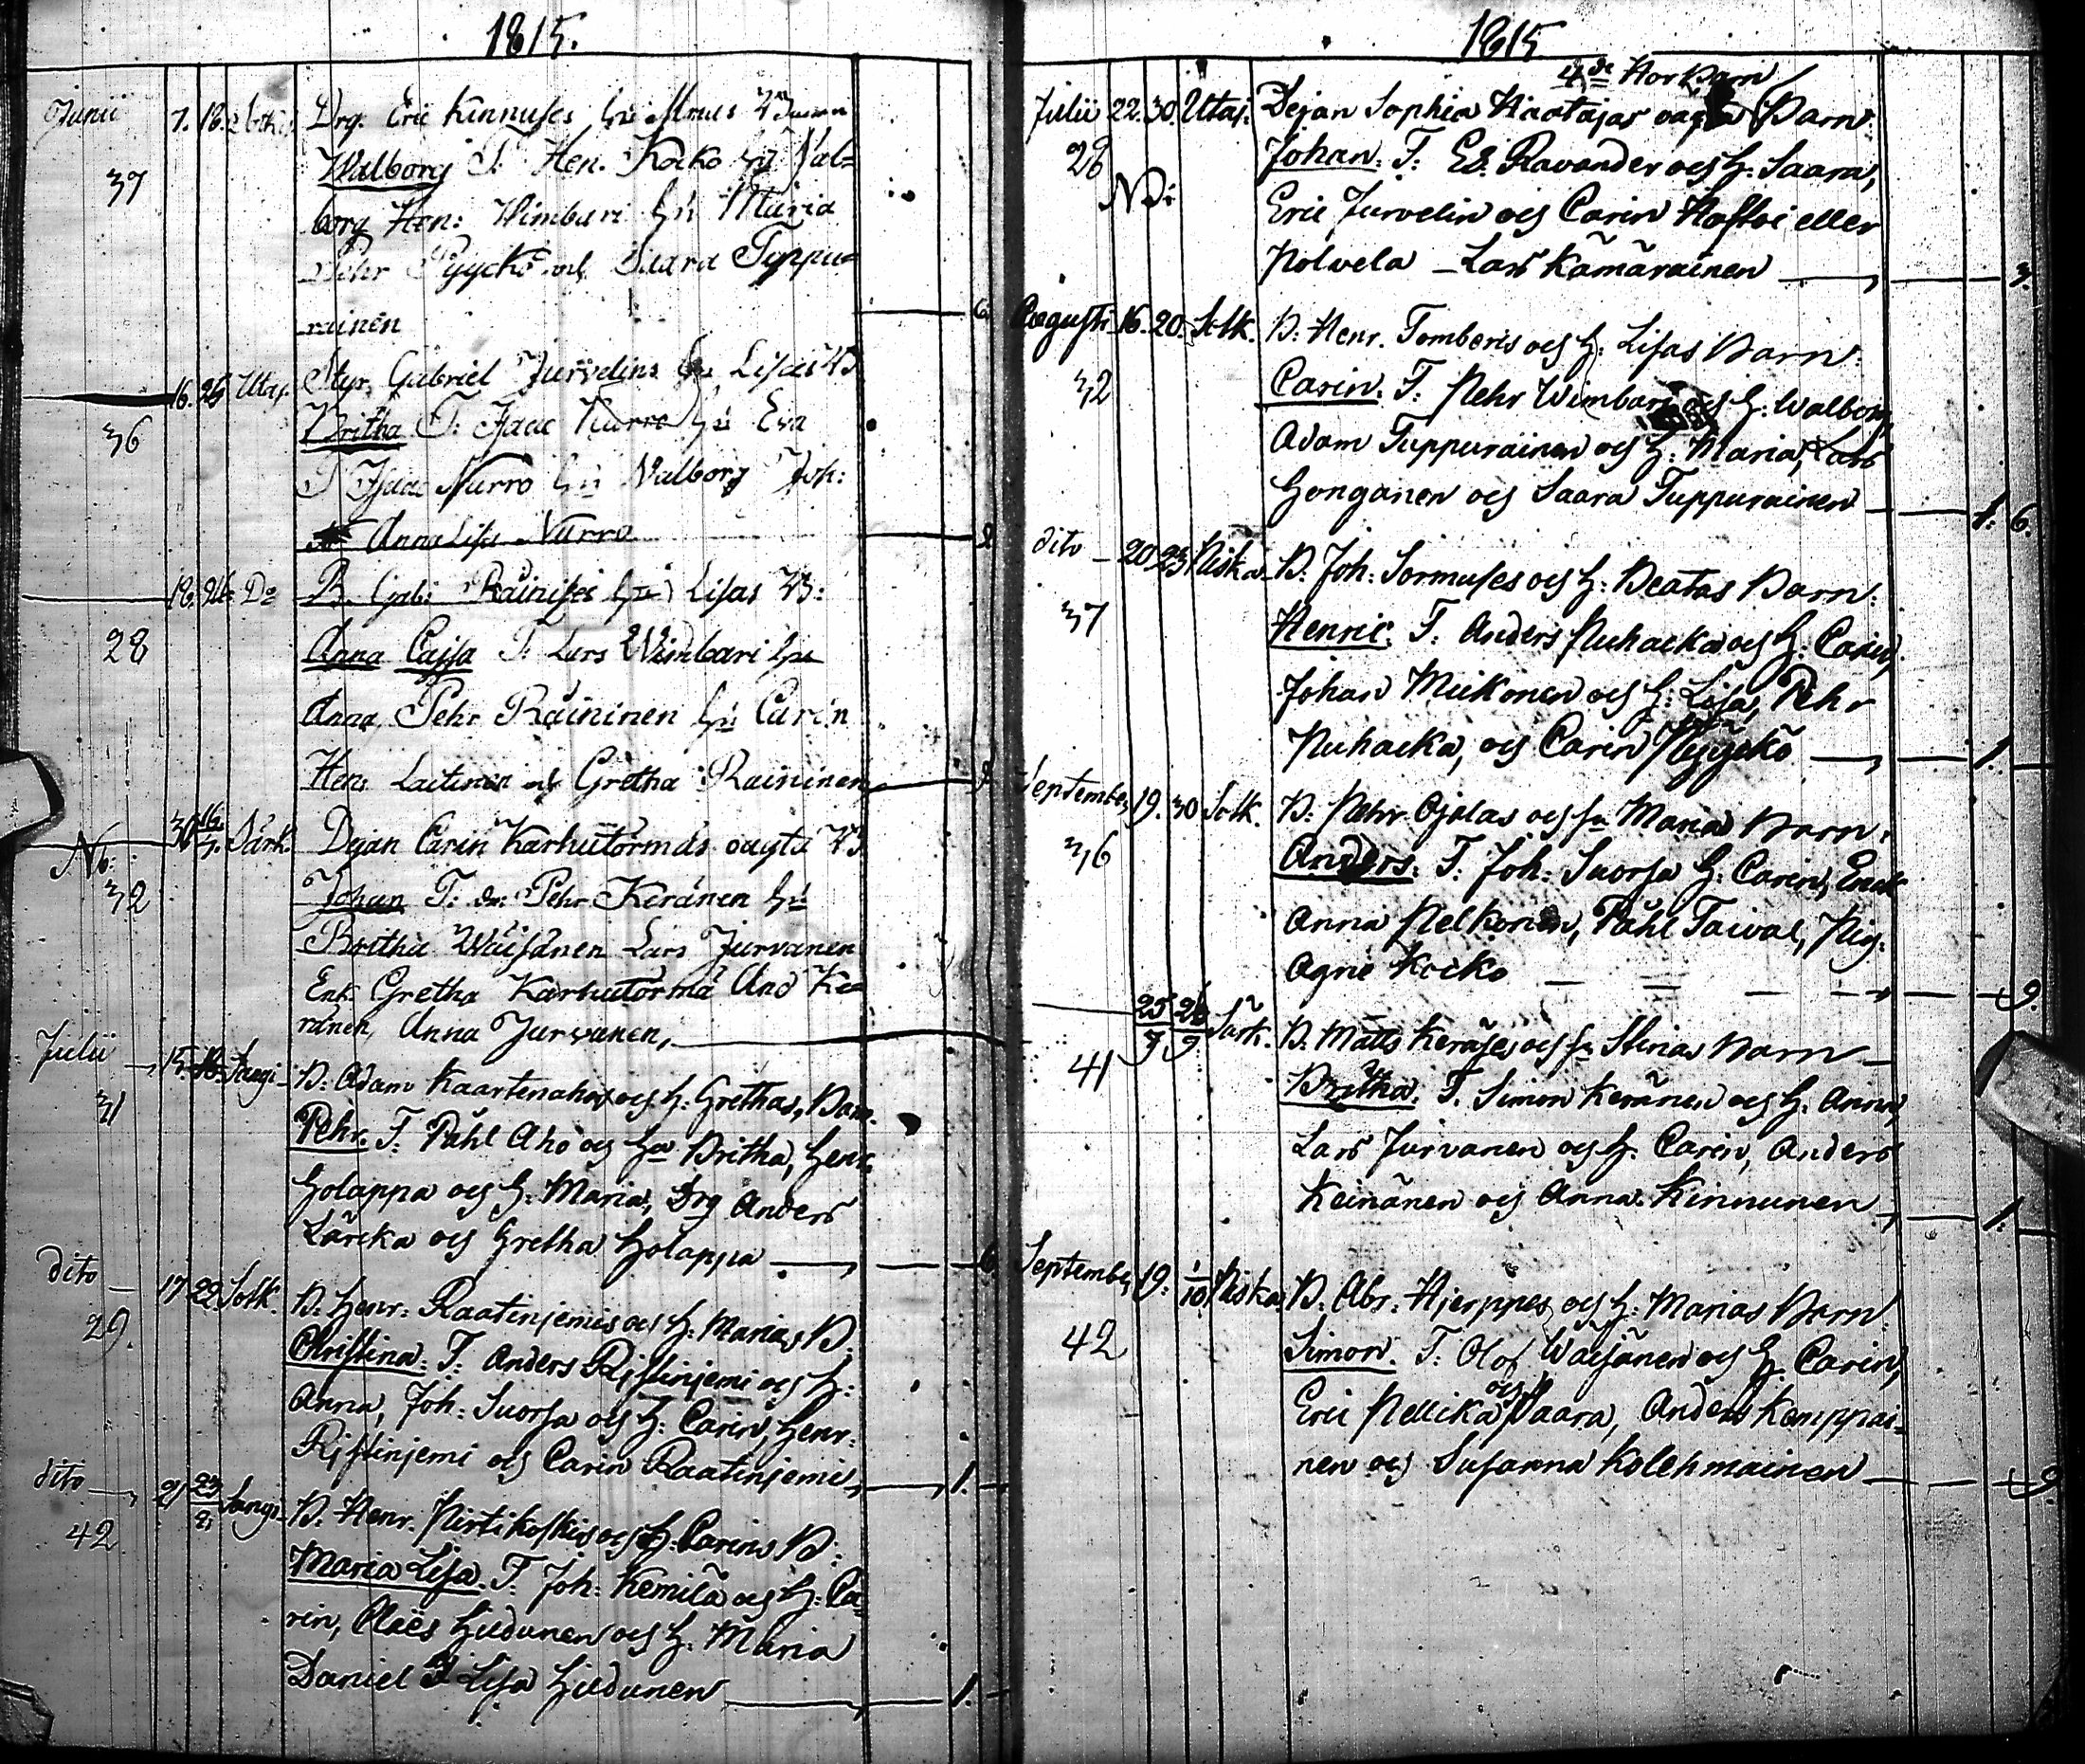 1815.
Junii 7. 18. Drg. Eric Kinnuses hu
37 Walborg T. Hen. Kocko hu Val=
borg Hen: Wimbari hu Maria
Pehr Pyycko och Saara Toppu=
rainen 6.
16. 26 Utaj. Styr. Gabriel Jurvelins hu Lisas B
36 Britha T: Isaac Kurro hu Eva
Isaac Nurro hu Walborg Joh:
Anna Lisa Nurro
18. 26. Do B. Gab: Räinises hu Lisas B:
28 Anna Cajsa T: Lars Wimbari hu
Anna, Pehr Räininen hu Carin
Hen: Laitinen och Gretha Räininen
No: 30 16/7. Särk. Dejan Carin Karhutörmäs oägta B
32 Johan T: Dr: Pehr Keränen hu
Britha Wäisänen Lars Jurvanen
Enk. Gretha Karhutörmä And Ke=
ränen, Anna Jurvanen,
Julii 15. 16. Sangi B: Adam Kaartenahos och H: Grethas, Barn.
31 Pehr. T: Påhl Aho och Hu Britha, Henr.
Holappa och H: Maria, Drg Anders
Lärcka och Gretha Holappa 6.
dito 17. 22. Sotk. B: Henr: Raatinjemis och H: Marias B:
29. Christina: T: Anders Ristinjemi och H:
Anna, Joh: Suorsa och H: Carin, Henr:
Ristinjemi och Carin Raatinjemi, 1.
dito 21 23/7. Sangi B: Henr. Pirtikoskis och H: Carins B:
42. Maria Lisa. T: Joh: Kemilä och H: Ca=
rin, Claës Hudunen och H: Maria
Daniel Lisa Hudunen 1.
1815
4de Hor Barn
Julii 22. 30. Utaj. Dejan Sophia Haatajas oägta Barn
28 Johan: T: Ed. Ravander och H: Saara,
No: Eric Jurvelin och Carin Koskoi eller
Polvela - Lars Kämäräinen 3.
Augusti 16. 20. Sotk. B: Henr. Tomberis och H: Lisas Barn:
32 Carin: T: Pehr Wimbari och H: Walborg,
Adam Tuppurainen och H: Maria, Lars
Honganen och Saara Tuppurainen 1. 6.
dito 20 23 Niska B: Joh: Sormuses och H: Beatas Barn:
37 Henric. T: Anders Puhacka och H: Carin,
Johan Mickonen och H: Lisa, Pehr
Puhacka, och Carin Pyyckö 1.
September 19. 30 Sotk. B: Pehr Ojalas och hu Marias Barn:
36 Anders. T: Joh: Suorsa H: Carin, Enck
Anna Pelkonen, Påhl Taival, Pig.
Agne Kocko 9.
25/7 26/9 Särk. B. Matts Keräses och hu Stinas Barn
41 Britha. T. Simon Keränen och H: Anna,
Lars Jurvanen och H: Carin, Anders
Keinänen och Anna Kinnunen 1.
September 19. 1/10 Niska B. Abr. Hjerppes och H: Marias Barn:
42 Simon. T: Olof Wäisänen och H: Carin,
Eric Pellika och Saara, Anders Kemppai=
nen och Susanna Kolehmainen 9.